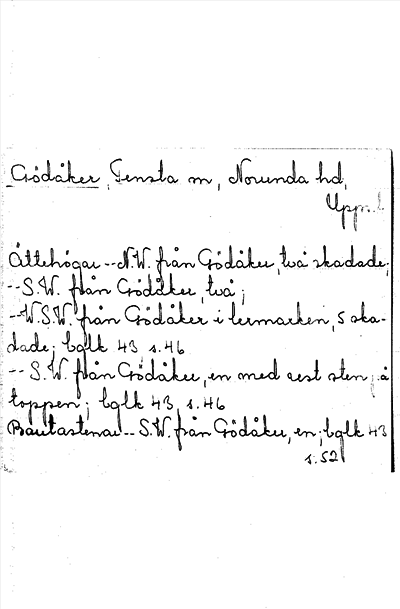 Gödåker, Tensta sn, Norunda hd,
Uppl.
Ättehögar -- N.W. från Gödåker, två skadade;
-- S.W. från Gödåker, två;
-- W.S.W. från Gödåker i lermarken, 5 ska-
dade; bglk 43 s. 46
-- S.W. från Gödåker, en med rest sten på
toppen; bglk 43 s. 46
Bautastenar -- S.W. från Gödåker, en; bglk 43
s. 52